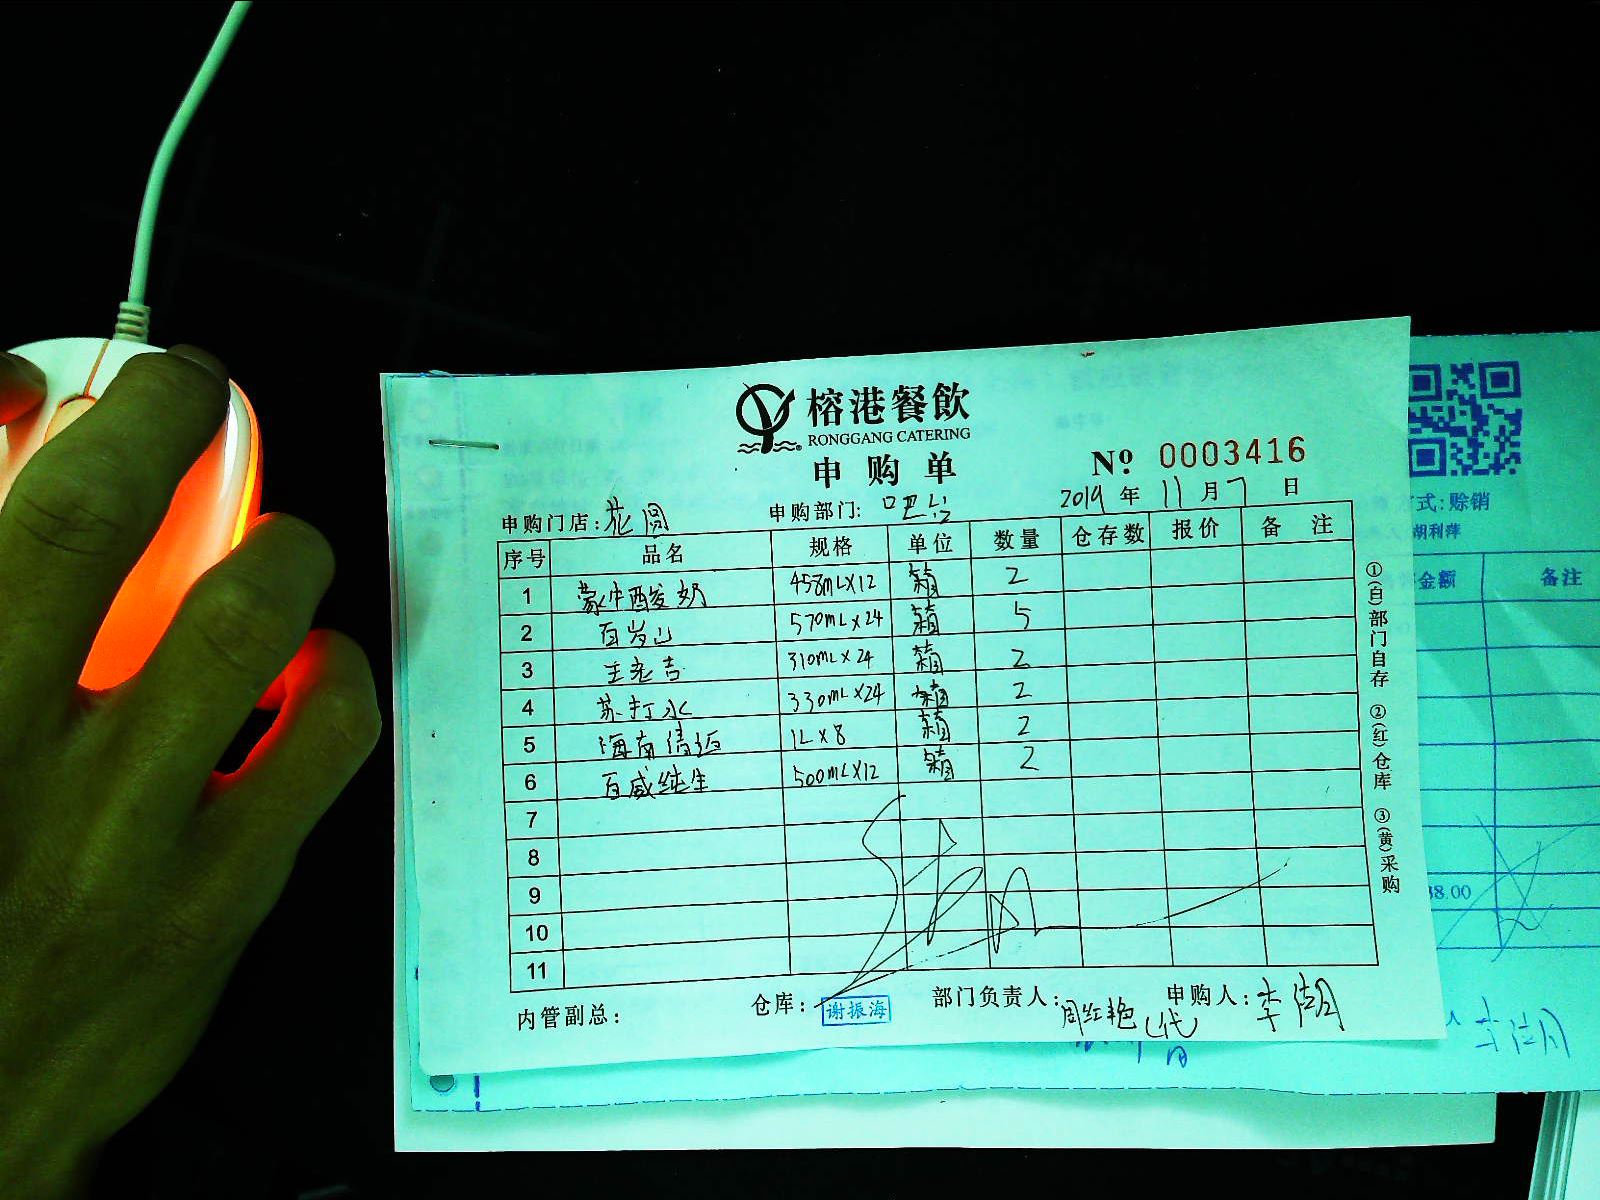 榕港餐飲
RONGGANG CATERING
申购单
Nº 0003416
2019 年 11 月 7 日
申购门店: 花园 申购部门: 吧台
序号 品名 规格 单位 数量 仓存数 报价 备注
1 蒙牛酸奶 458mL×12 箱 2
2 百岁山 570mL×24 箱 5
3 王老吉 310mL×24 箱 2
4 苏打水 330mL×24 箱 2
5 海南清泊 1L×8 箱 2
6 百威纯生 500mL×12 箱 2
7
8
9
10
11
内管副总: 仓库: 谢振海 部门负责人: 周红艳(代) 申购人: 李湖
①(白)部门自存 ②(红)仓库 ③(黄)采购
式:赊销
胡利萍
金额 备注
38.00